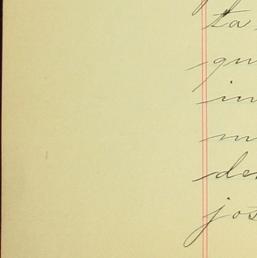 ta
qu
in
m
de
jos